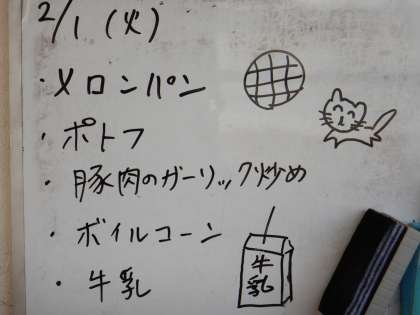 2/1 (火)
・メロンパン
・ポトフ
・豚肉のガーリック炒め
・ボイルコーン
・牛乳
牛乳